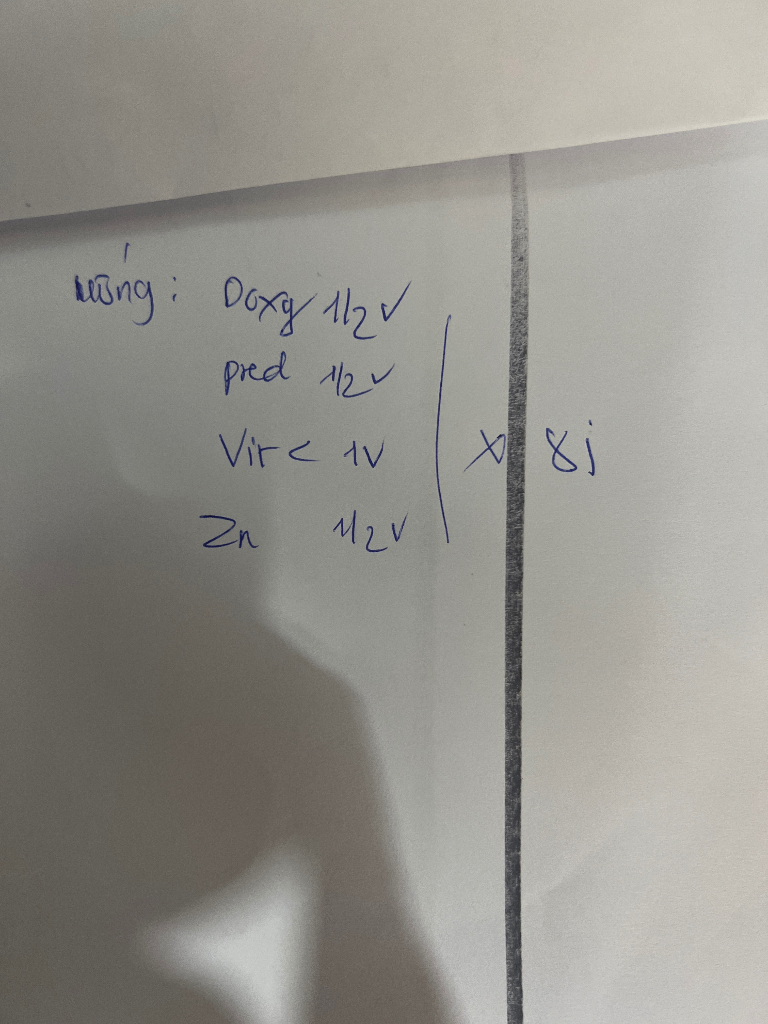 uống: Doxy 1/2 v
pred 1/2 v
Vit C 1v
Zn 1/2 v
x 8j